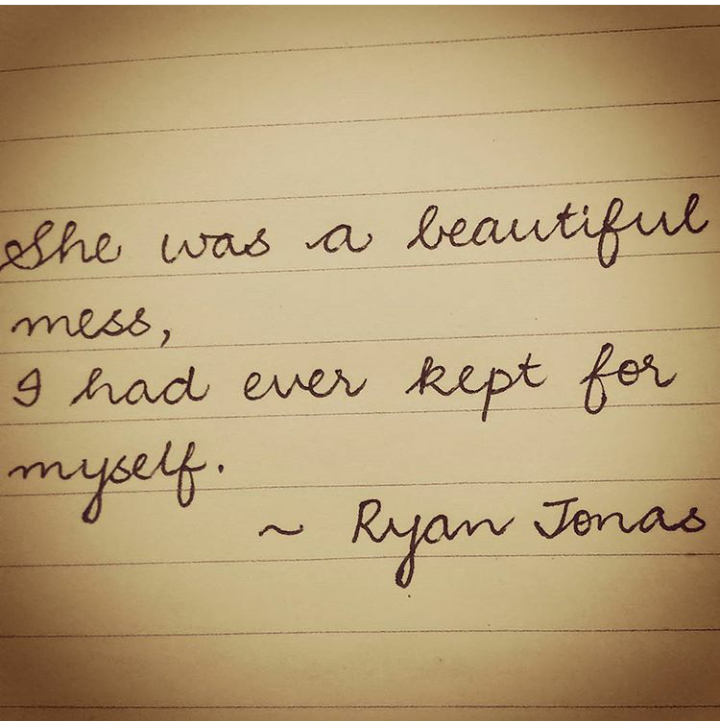 She was a beautiful
mess,
I had ever kept for
myself.
~ Ryan Jonas